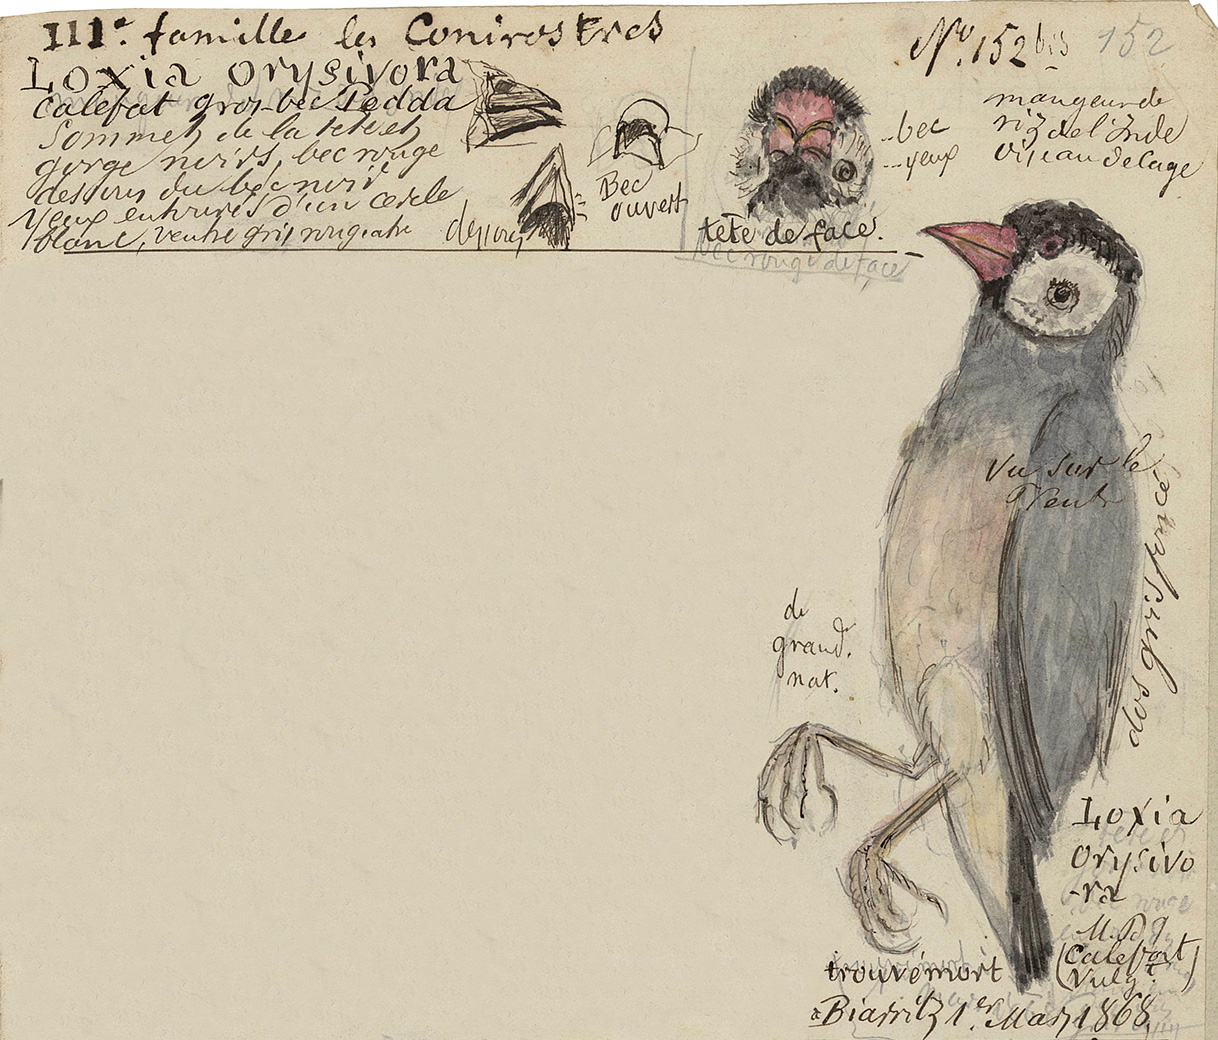 IIIe. famille les Conirostres
Loxia orysivora
Calefat gros-bec Padda
Sommet de la tete et
gorge noirs, bec rouge
dessus du bec noir
Yeux entourés d'un cercle
blanc, ventre gris rougeatre
dessous
Bec
ouvert
bec
yeux
tête de face.
bec rouge de face
No. 152 bis
152
mangeur de
riz de l'Inde
oiseau de cage
Vu sur le
Ventre
dos gris foncé
de
grand.
nat.
Loxia
orysivo
-ra
(Calefat
Vulgt.)
trouvé mort
a Biarritz 1er. Mars 1868